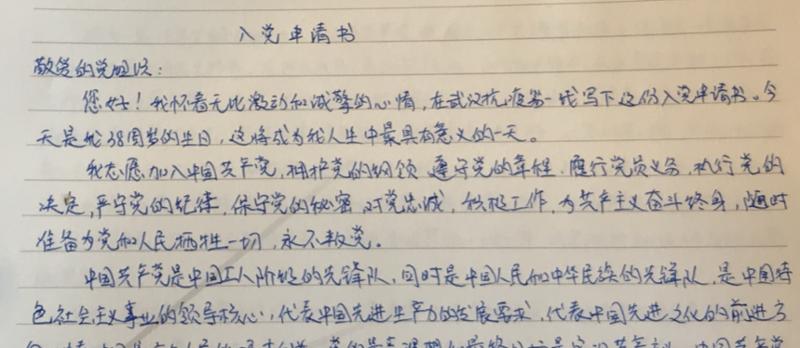 入党申请书
敬爱的党组织：
您好！我怀着无比激动和诚挚的心情，在武汉抗疫第一线写下这份入党申请书。今
天是我38周岁的生日，这将成为我人生中最具有意义的一天。
我志愿加入中国共产党，拥护党的纲领，遵守党的章程，履行党员义务，执行党的
决定，严守党的纪律，保守党的秘密，对党忠诚，积极工作，为共产主义奋斗终身，随时
准备为党和人民牺牲一切，永不叛党。
中国共产党是中国工人阶级的先锋队，同时是中国人民和中华民族的先锋队，是中国特
色社会主义事业的领导核心，代表中国先进生产力的发展要求，代表中国先进文化的前进方